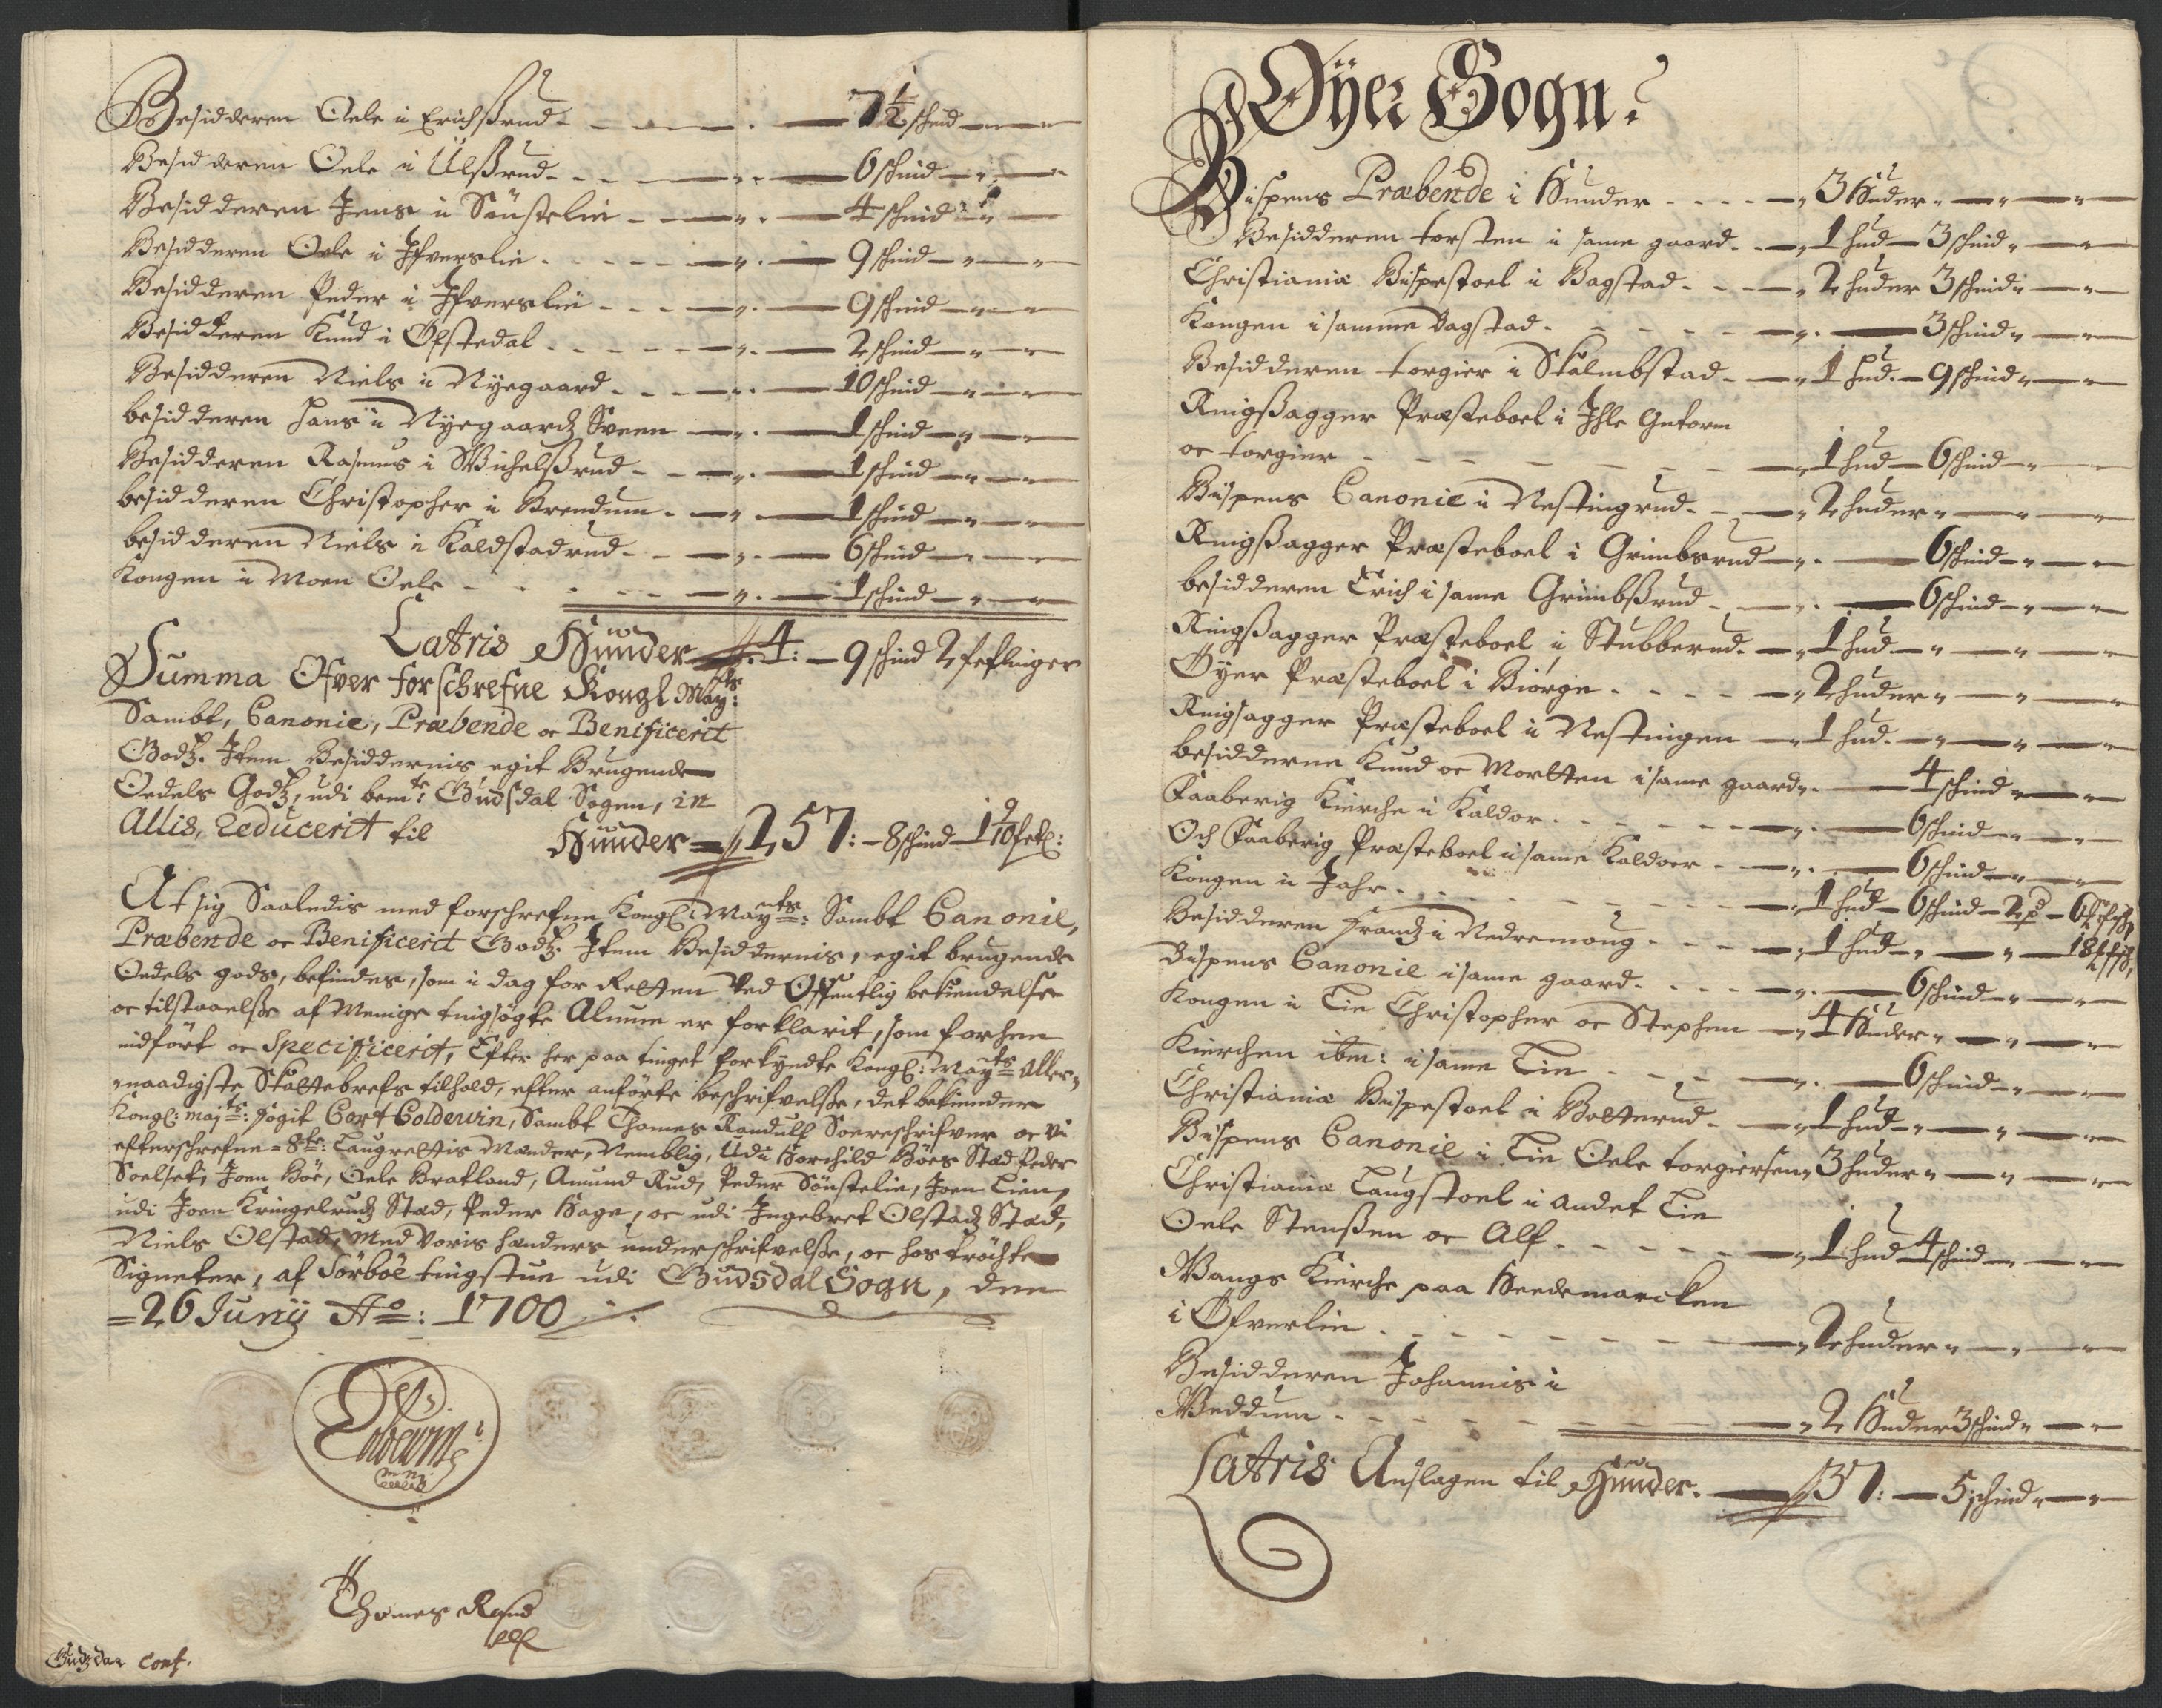 Besidderen Oele i Erichsrud - - - 7 1/2 schind
Besidderen Oele i Ulsrud - - - 6 schind
Besidderen Jens i Sönstelie - - 4 schind
Besidderen Oele i Ifverslie - - - 9 schind
Besidderen Peder i Ifverslie - - - 9 schind
Besidderen Knud i Öfstedal - - - 2 schind
Besidderen Niels i Nyegaard - - - 10 schind
besidderen Hans i Nyegaardz Sveen 1 schind
Besidderen Rasmus i Michelsrud - - 1 schind
besidderen Christopher i Brendum - 1 schind
besidderen Niels i Kaldstadrud - - 6 schind
Kongen i Moen Oele - - - 1 schind
Latris Hunder 4: - 9 schind 2 feflinger
Summa Ofver forschrefne Kongl Mayts:
Sambt, Canonie, Præbende oc Benificerit
Godz. Item Besiddernis egit Brugende
Oedels Godz, udi bemte: Gudsdal Sogen, in
Allis, reducerit til Hunder = 257: - 8 schind - 1 9/10 fefl:
At sig Saaledis med forschrefne Kongl: Mayts: Sambt Canonie,
Præbende oc Benificerit Godz. Item Besiddernis, egit brugende
Oedels gods, befindes, som i dag for Retten Ved Offentlig bekiendelse
oc tilstaaelse af Menige tingsögte Almue er forklarit, som forhen
indfört oc Specificerit, Efter her paa tinget forkyndte Kongl: Mayts Aller-
naadigste Skattebrefs tilhold, efter anförte beschrifvelse, det bekiender
Kongl: mayts: fogit Cort Coldewin, Sambt Thomes Randulf Soerschrifver oc Vi
efterschrefne = 8te: Laugrettis Mænder, Nemblig, Udi Torchild Böes Stæd Peder
Soelset, Joen Böe, Oele Bratland, Amund Rud, Peder Sönstelie, Joen Lien,
udi Joen Kringelrudz Stæd, Peder Hage, oc udi Ingebret Olstadz Stæd,
Niels Olstad, med Voris hænders underschrifvelse, oc hoströchte
Signeter, af Sörböe tingstue udi Gudsdal Sogn, den
= 26 Junij Ao: 1700
Thomes Rand
Gudzdal Cont.
Öyer Sogn.
Bispens Præbende i Hunder - - - 3 Huder
Besidderen torsten i same gaard - 1 hud - 3 schind
Christiania Bispestoel i Bagstad - - 2 huder 3 schind
Kongen i samme Bagstad - - - 3 schind
Besidderen torgier i Skalmbstad - 1 hud - 9 schind
Ringsagger Præsteboel i Ihle Gutorm
oc torgier - - - 1 hud - 6 schind
Bispens Canonie i Nestingrud - - 2 huder
Ringsagger Præsteboel i Grimbsrud - 6 schind
besidderen Erich i same Grimbsrud - 6 schind
Ringsagger Præsteboel i Stubberud - 1 hud
Öyer Præsteboel i Biörge - - - 2 huder
Ringsagger Præsteboel i Nestingen - 1 hud
besidderne Knud oc Mortten i same gaard - 4 schind
Faaberig Kierche i Kaldor - - - 6 schind
Och Faaberig Præsteboel i same Kaldoer - - 6 schind
Kongen i Jahr - - - 1 hud - 6 schind - 2
Besidderen Frandz i Nedremoug - - - 1 hud - 18
Bispens Canonie i same gaard - - - 6 schind
Kongen i Lie Christopher oc Stephen - 4 Huder
Kierchen ibm: i same Lie - - - 6 schind
Christiania Bispestoel i Botterud - - 1 hud
Bispens Canonie i Lie Oele torgiersen 3 huder
Christiania Laugstoel i andet Lie
Oele Stensen oc Alf - - - 1 hud 4 schind
Vangs Kierche paa Heedemarcken
i Öfverlie - - - 2 huder
Besidderen Johannis i
Veddum - - - 2 Huder 3 schind
Latris Anslagen til Hunder. 37: - 5 schind